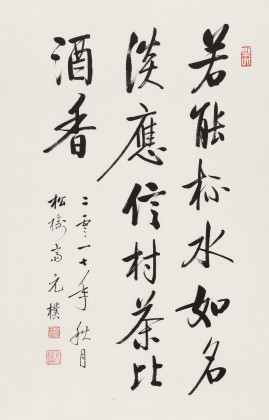 若能杯水如名
淡應信村茶比
酒香
二零一七年秋月
松梅高元樸